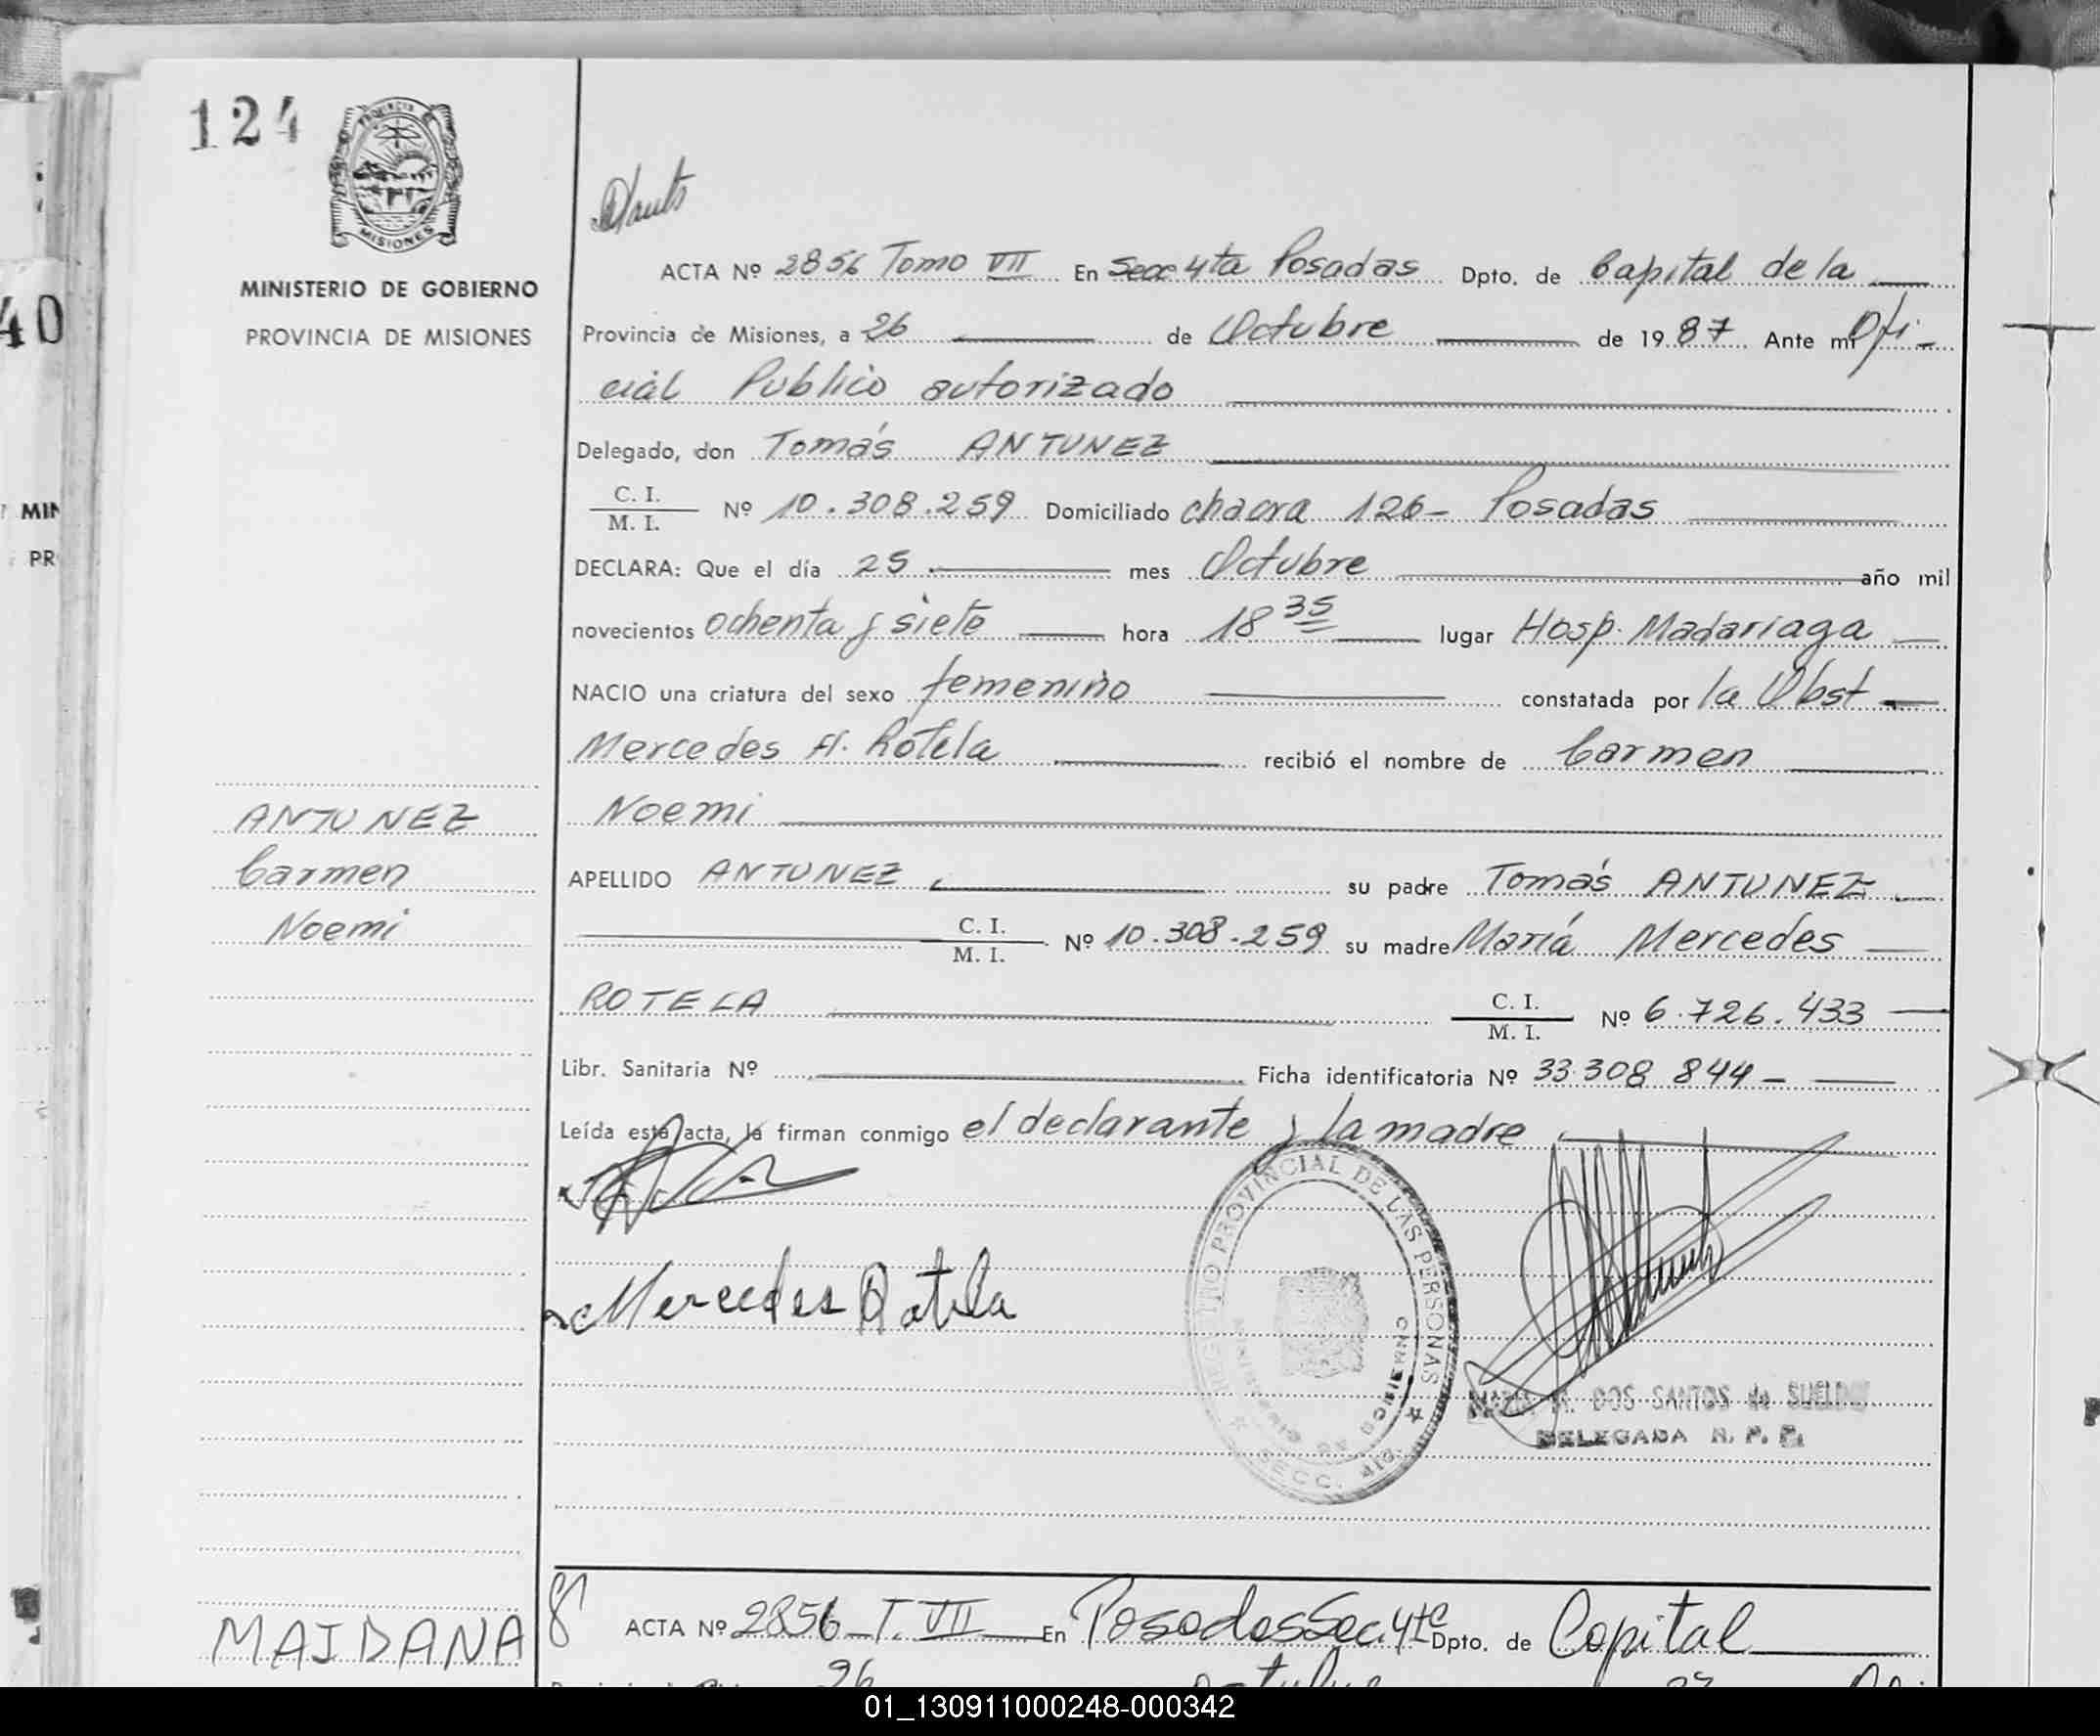 124
PROVINCIA DE
MISIONES
MINISTERIO DE GOBIERNO
PROVINCIA DE MISIONES
40
MIN
PR
ACTA Nº 2856 Tomo VII En Secc 4ta Posadas Dpto. de Capital de la
Provincia de Misiones, a 26 de Octubre de 1987 Ante mi Ofi-
cial Publico autorizado
Delegado, don Tomás ANTUNEZ
C. I.
M. I. Nº 10.308.259 Domiciliado chacra 126- Posadas
DECLARA: Que el día 25 mes Octubre año mil
novecientos ochenta y siete hora 18 35 lugar Hosp. Madariaga
NACIO una criatura del sexo femenino constatada por la Obst
Mercedes A. Rotela recibió el nombre de Carmen
Noemi
ANTUNEZ
Carmen
Noemi
APELLIDO ANTUNEZ, su padre Tomás ANTUNEZ
C. I.
M. I. Nº 10.308.259 su madre María Mercedes
ROTELA C. I.
M. I. Nº 6.726.433
Libr. Sanitaria Nº Ficha identificatoria Nº 33.308 844-
Leída esta acta, la firman conmigo el declarante y la madre
Mercedes Rotela
REGISTRO PROVINCIAL DE LAS PERSONAS
MINISTERIO DE GOBIERNO
SECC. 4ta
M. DOS SANTOS de SUELDO
DELEGADA R. P. P.
MAIDANA
8 ACTA Nº 2856 T. VII En Posadas Sec. 4ta Dpto. de Capital
26
01_130911000248-000342